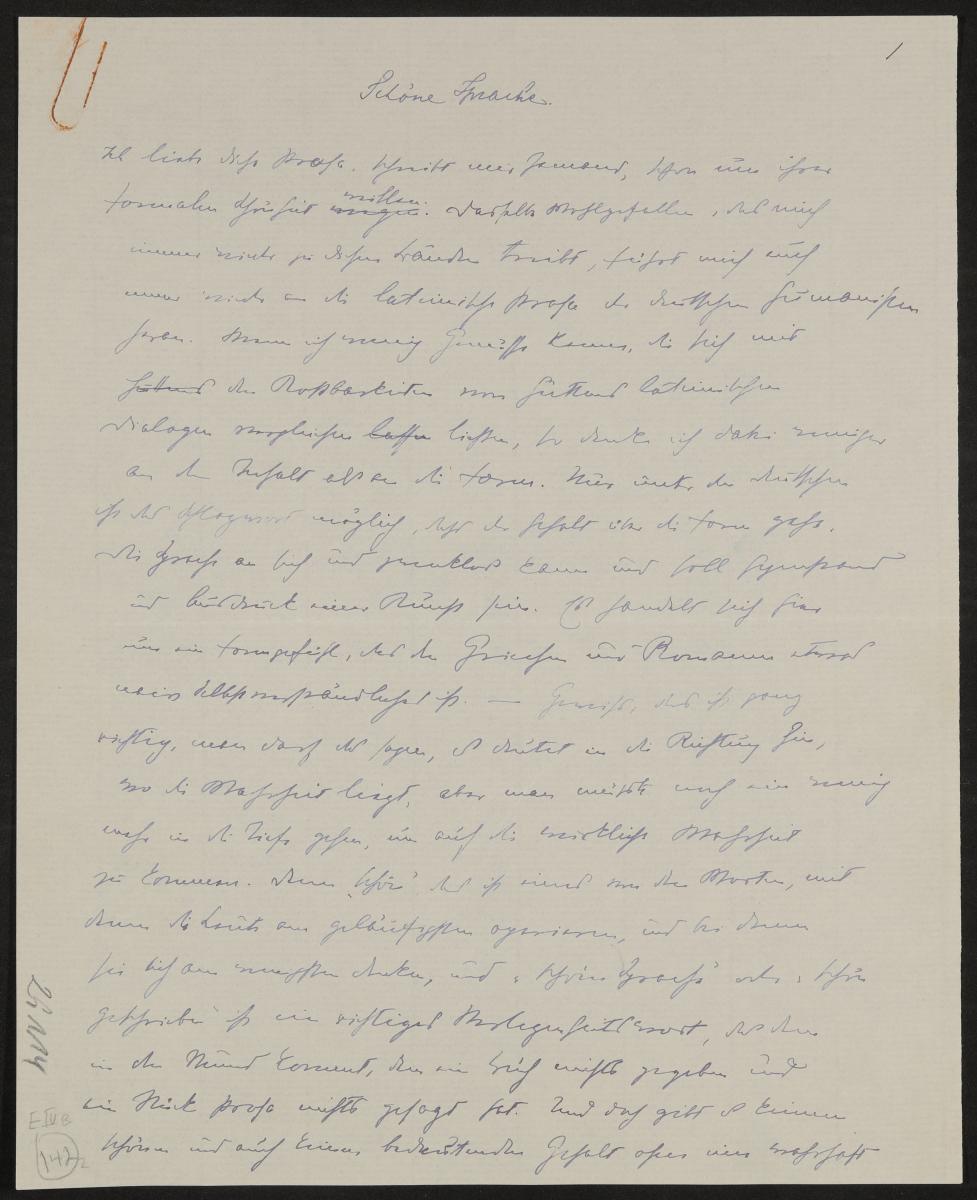 1
Schöne Sprache.
Ich liebe diese Prosa, schreibt mir jemand, schon um ihrer
formalen Schönheit wegen willen. Dasselbe Wohlgefallen, das mich
immer wieder zu diesen Bänden treibt, führt mich auch
immer wieder an die lateinische Prosa der deutschen Humanisten
heran. Wenn ich wenig Genüsse kenne, die sich mit
Huttens den Kostbarkeiten von Huttens lateinischen
Dialogen vergleichen lassen ließen, so denke ich dabei weniger
an den Inhalt als an die Form. Nur unter den Deutschen
ist das Schlagwort möglich, dass der Gehalt über die Form gehe.
Die Sprache an sich und zwecklos kann und soll Gegenstand
und Ausdruck einer Kunst sein. Es handelt sich hier
um ein Formgefühl, das den Griechen und Romanen etwas
Selbstverständliches ist. — Gewiss, das ist ganz
richtig, man darf das sagen, es deutet in die Richtung hin,
wo die Wahrheit liegt, aber man müsste noch ein wenig
mehr in die Tiefe gehen, um auf die wirkliche Wahrheit
zu kommen. Denn „schön" das ist eines von den Worten, mit
denen die Leute am geläufigsten operieren, und bei denen
sie sich am wenigsten denken, und „schöne Sprache" oder „schön
geschrieben" ist ein richtiges Verlegenheitswort, das dem
in den Mund kommt, dem ein Buch nichts gegeben und
ein Stück Prosa nichts gesagt hat. Und doch gibt es keinen
schönen und auch keinen bedeutenden Gehalt ohne eine wahrhaft
E IV B
142